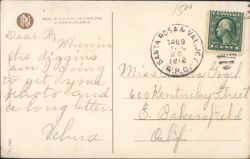 THIS SPACE MAY BE USED FOR
CORRESPONDENCE
Dear R
When in
the diggins
am I going
to get your
photo and
a long letter
Velma
SANTA ROSA & VALJO
R.P.O.
1912
Miss
600 Kentucky Street
E. Bakersfield
Calif.